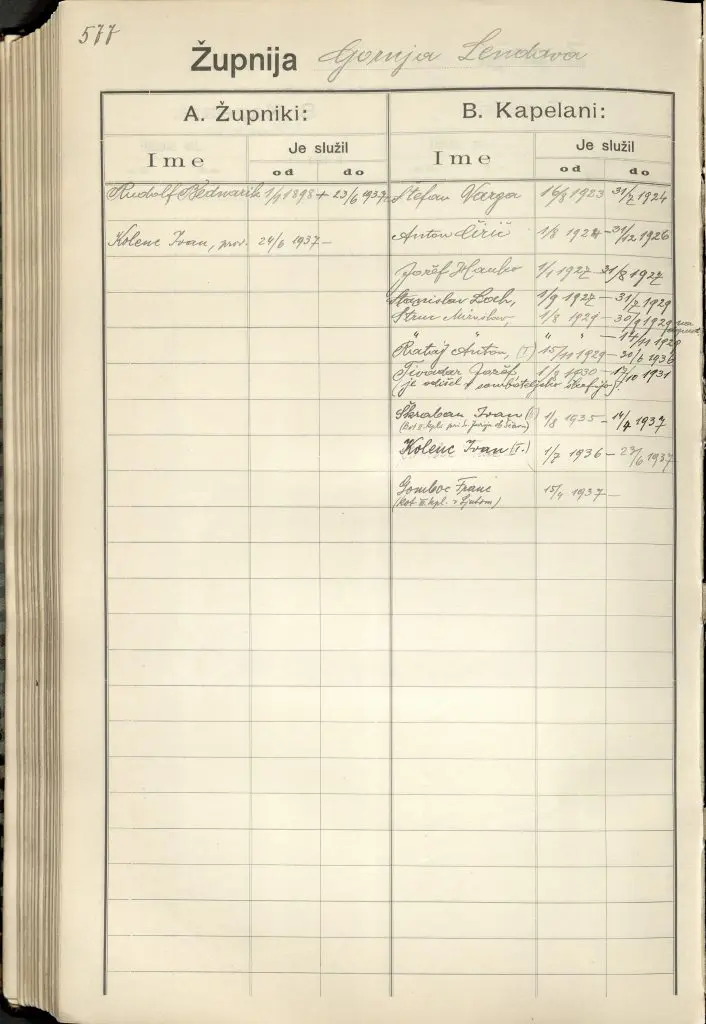 577
Župnija Gornja Lendava
A. Župniki:
B. Kapelani:
Ime
Je služil
od do
Ime
Je služil
od do
Rudolf Bednarik 1/9 1898 + 23/6 1937
Kolenc Ivan, prov. 24/6 1937 –
Štefan Varga 16/8 1923 31/7 1924
Anton Čirič 1/8 1924 – 31/12 1926
Jožef 1/1 1927 31/8 1927
Stanislav Loch, 1/9 1927 – 31/7 1929
Miroslav, 1/8 1929 – 30/9 1929 na
" " " " – 14/11 1929
Rataj Anton, (I) 15/11 1929 – 30/6 1936
Tivadar Jožef, 1/8 1930 – 17/10 1931
(je odišel v sombateljsko škofijo).
Škraban Ivan 1/8 1935 – 14/4 1937
(Kot II. kpl. pri Sv. Juriju ob Ščavn.)
Kolenc Ivan (I.) 1/7 1936 – 23/6 1937
Gomboc Franc 15/4 1937 –
(kot III. kpl. v Ljutom)